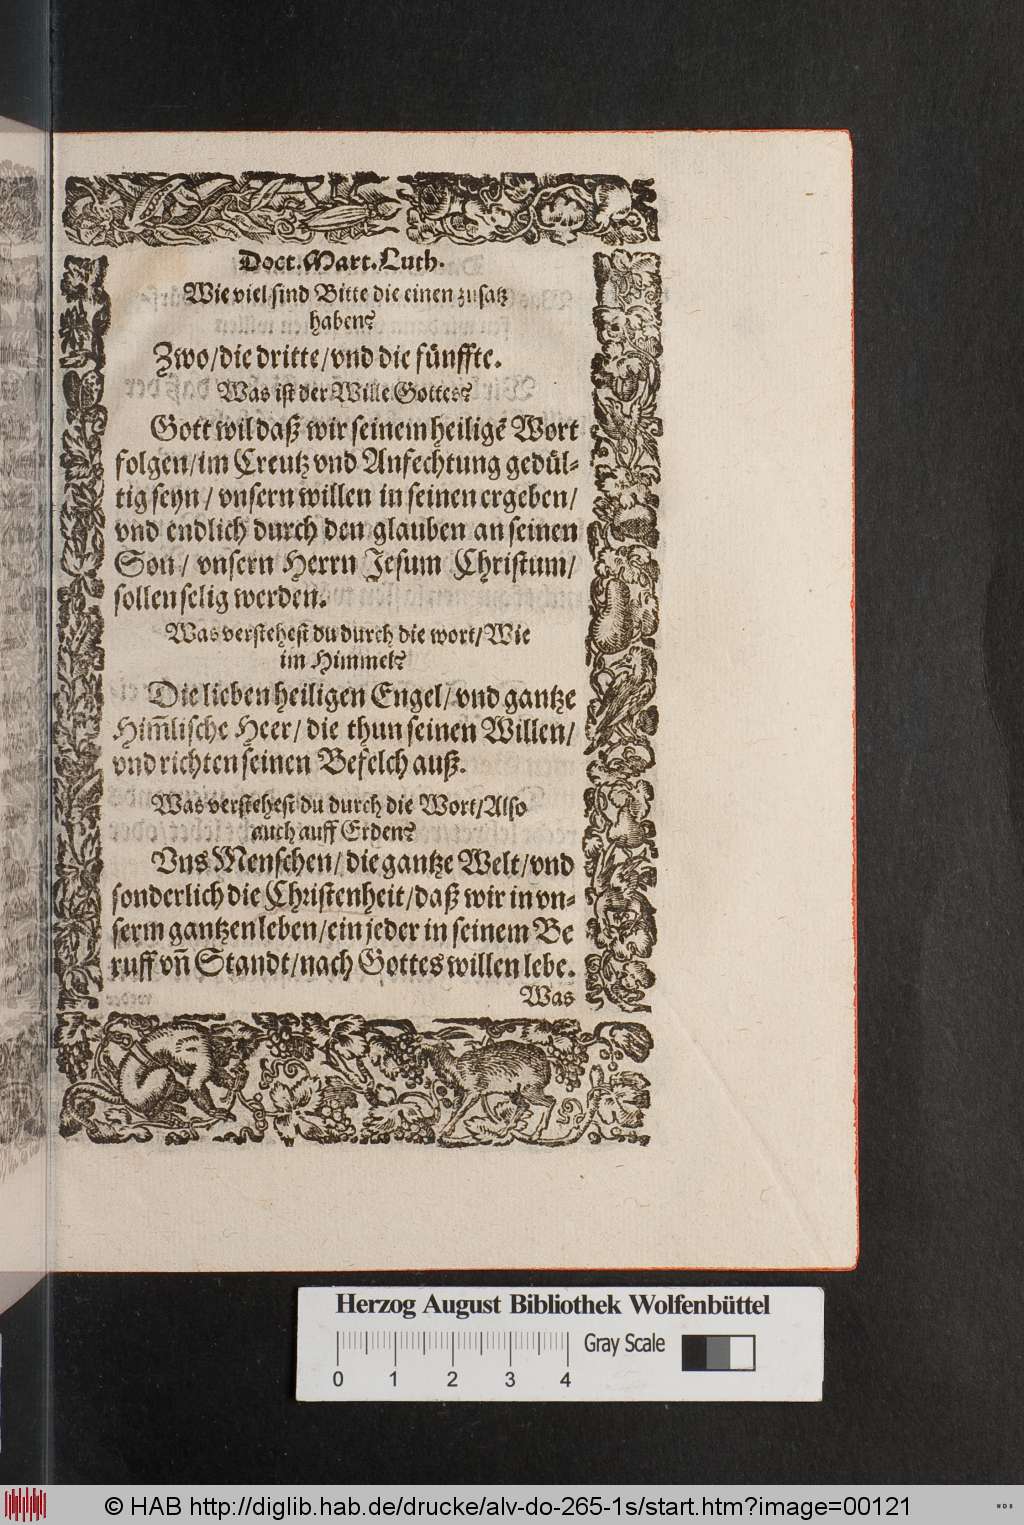 Doct. Mart. Luth.
Wie viel sind Bitte die einen zusatz
haben?
Zwo/die dritte/vnd die fünffte.
Was ist der Wille Gottes?
Gott wil daß wir seinem heiligẽ Wort
folgen/im Creutz vnd Anfechtung gedül-
tig seyn/ vnsern willen in seinen ergeben/
vnd endlich durch den glauben an seinen
Son/ vnsern Herrn Jesum Christum/
sollen selig werden.
Was verstehest du durch die wort/Wie
im Himmel?
Die lieben heiligen Engel/vnd gantze
Him̃lische Heer/ die thun seinen Willen/
vnd richten seinen Befelch auß.
Was verstehest du durch die Wort/Also
auch auff Erden?
Vns Menschen/die gantze Welt/vnd
sonderlich die Christenheit/daß wir in vn-
serm gantzen leben/ein jeder in seinem Be
ruff vñ Standt/nach Gottes willen lebe.
Was
Herzog August Bibliothek Wolfenbüttel
Gray Scale
0 1 2 3 4
© HAB http://diglib.hab.de/drucke/alv-do-265-1s/start.htm?image=00121